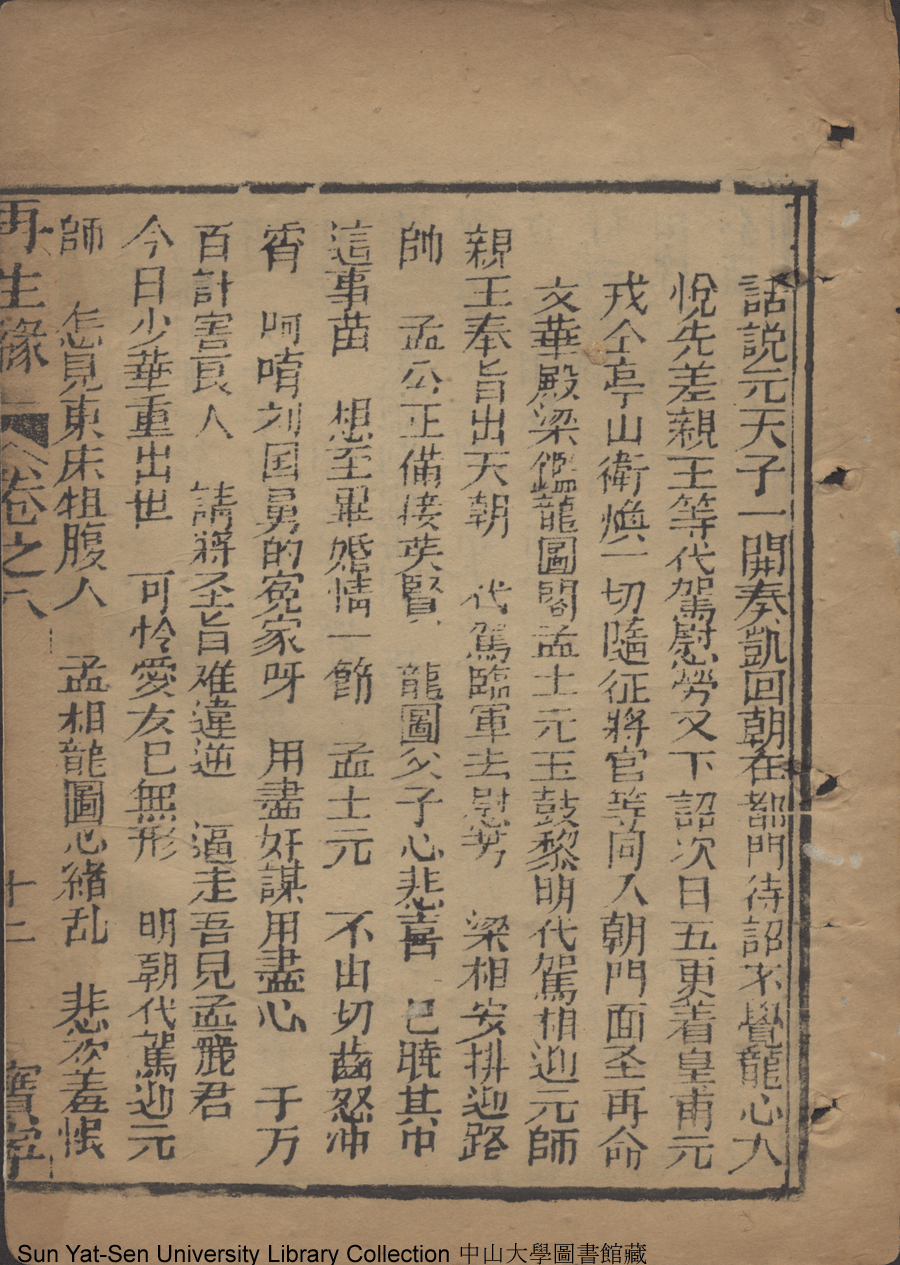 話說元天子一開奏凱回朝在都門待詔不覺龍心大
悅先差親王等代駕慰勞又下詔次日五更着皇甫元
戎仝亭山衛煥一切隨征將官等同入朝門面圣再命
文華殿梁鑑龍圖閣孟士元玉鼓黎明代駕相迎元師
親王奉旨出天朝 代駕臨軍去慰劳 梁相安排迎路
帥 孟公正備接英賢 龍圖父子心悲喜 已曉其中
這事苗 想至畢婚情一節 孟士元 不由切齒怒冲
霄 呵唷刘国舅的冤家呀 用盡奸謀用盡心 于万
百計害良人 請將圣旨难違逆 逼走吾兒孟麗君
今日少華重出世 可怜愛友已無形 明朝代駕迎元
師 怎見東床袒腹人 孟相龍圖心緒乱 悲欢羞恨
再生緣 卷之八 十二 寳寧
Sun Yat-Sen University Library Collection 中山大學圖書館藏